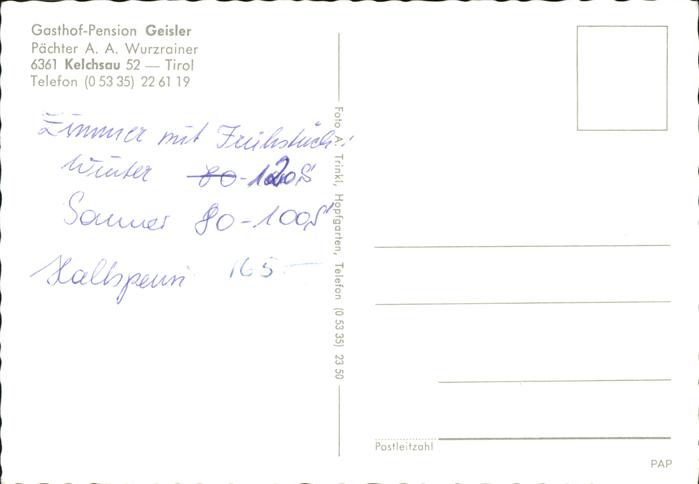 Gasthof-Pension Geisler
Pächter A. A. Wurzrainer
6361 Kelchsau 52 — Tirol
Telefon (0 53 35) 22 61 19
Zimmer mit Frühstück:
Winter 80-120S
Sommer 80-100S
Halbpens 165.—
Foto A. Trinkl, Hopfgarten, Telefon (0 53 35) 23 50
Postleitzahl
PAP